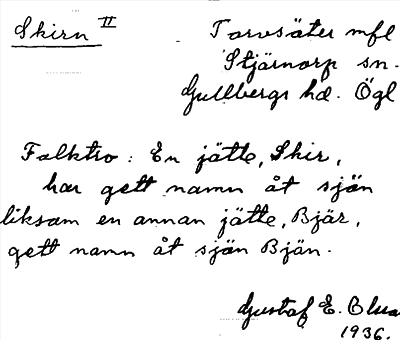 Skirn II
Torvsäter mfl
Stjärnorp sn.
Gullbergs hd. Ögl
Folktro: En jätte, Skir,
har gett namn åt sjön
liksom en annan jätte, Bjär,
gett namn åt sjön Bjän.
Gustaf E.
1936.